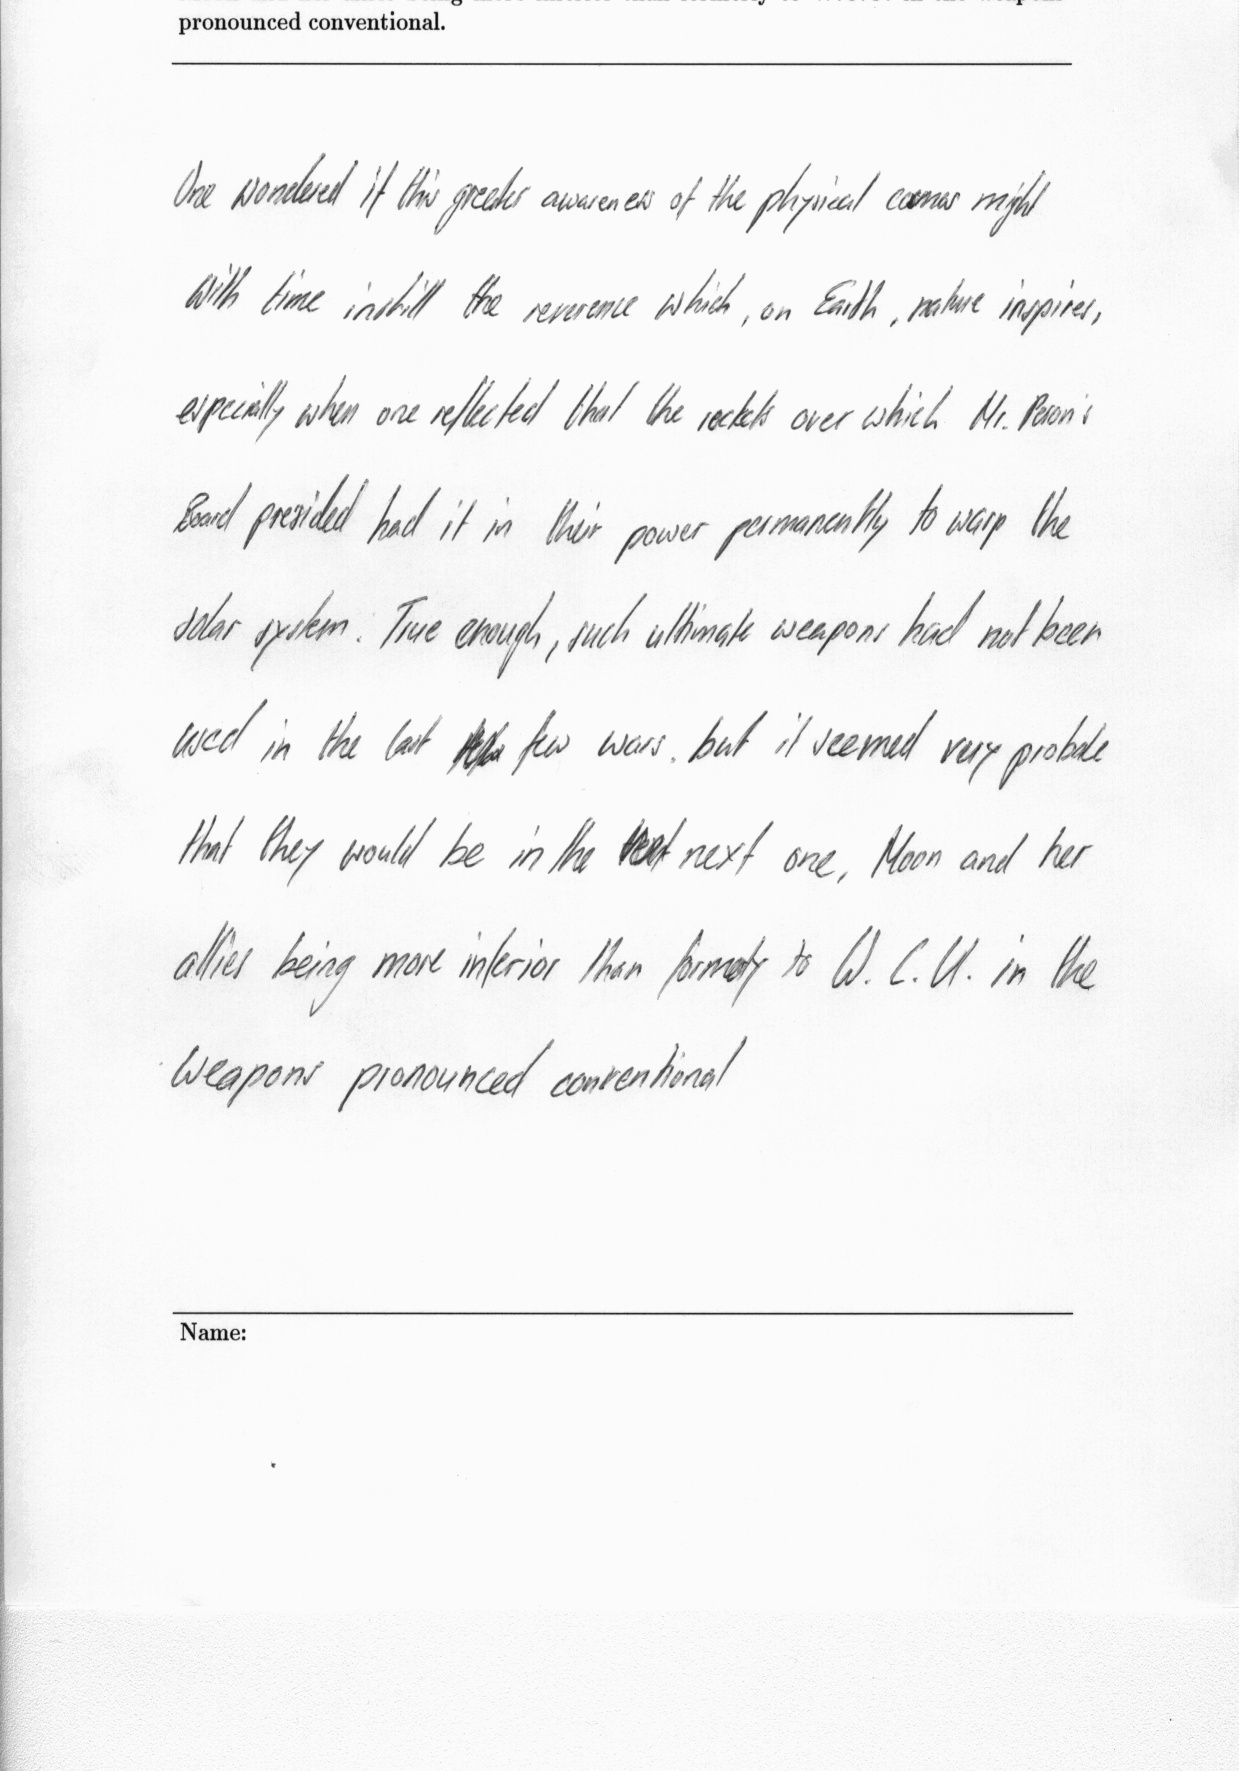 pronounced conventional.
One wondered if this greater awareness of the physical cosmos might
with time instill the reverence which, on Earth, nature inspires,
especially when one reflected that the rockets over which Mr. Peron's
Board presided had it in their power permanently to warp the
solar system. True enough, such ultimate weapons had not been
used in the last few wars. but it seemed very probable
that they would be in the next one, Moon and her
allies being more inferior than formerly to W. C. U. in the
weapons pronounced conventional
Name: